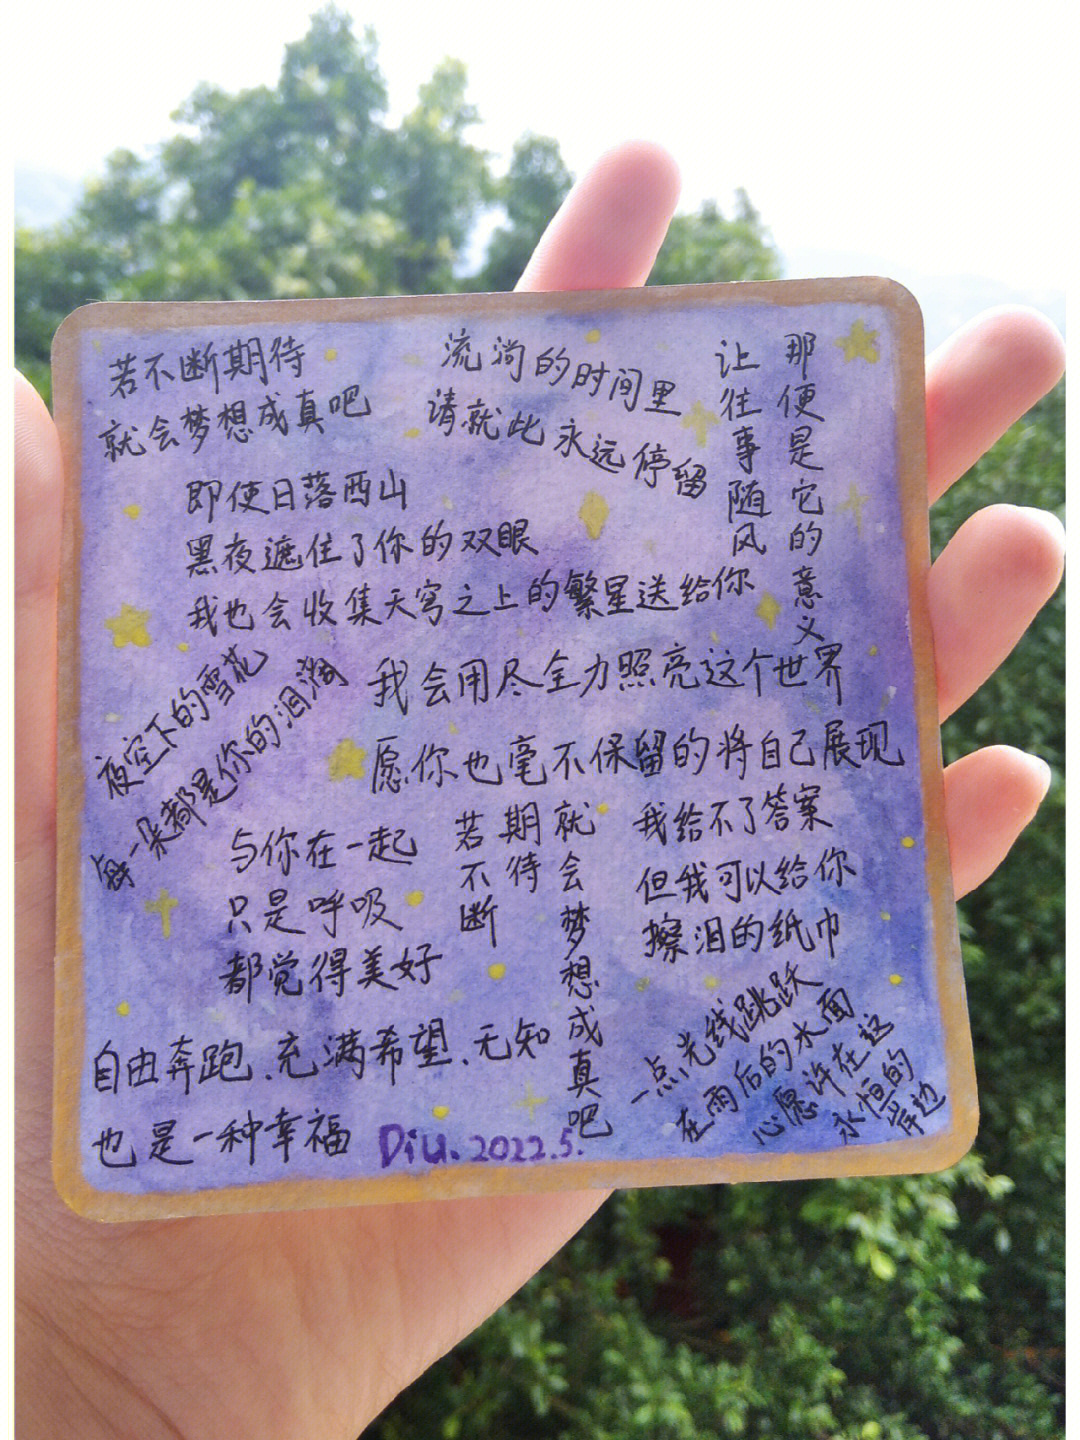 若不断期待
就会梦想成真吧
流淌的时间里
请就此永远停留
那便是它的意义
让往事随风
即使日落西山
黑夜遮住了你的双眼
我也会收集天穹之上的繁星送给你
夜空下的雪花
每一朵都是你的泪滴
我会用尽全力照亮这个世界
愿你也毫不保留的将自己展现
与你在一起
只是呼吸
都觉得美好
若不断
期待
就会梦想成真吧
我给不了答案
但我可以给你
擦泪的纸巾
一点光线跳跃
在雨后的水面
心愿许在这
永恒的
岸边
自由奔跑、充满希望、无知
也是一种幸福
Diu. 2022.5.